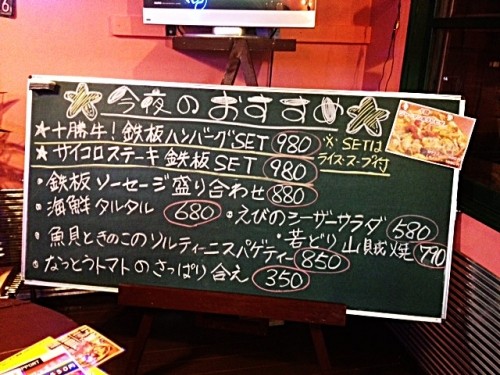 ☆今夜のおすすめ☆
★十勝牛！鉄板ハンバーグSET 980
★サイコロステーキ鉄板SET 980
※SETは
ライス・スープ付
・鉄板ソーセージ盛り合わせ 880
・海鮮タルタル 680
・えびのシーザーサラダ 580
・若どり山賊焼 790
・魚貝ときのこのソルティーニスパゲティー 850
・なっとうトマトのさっぱり合え 350